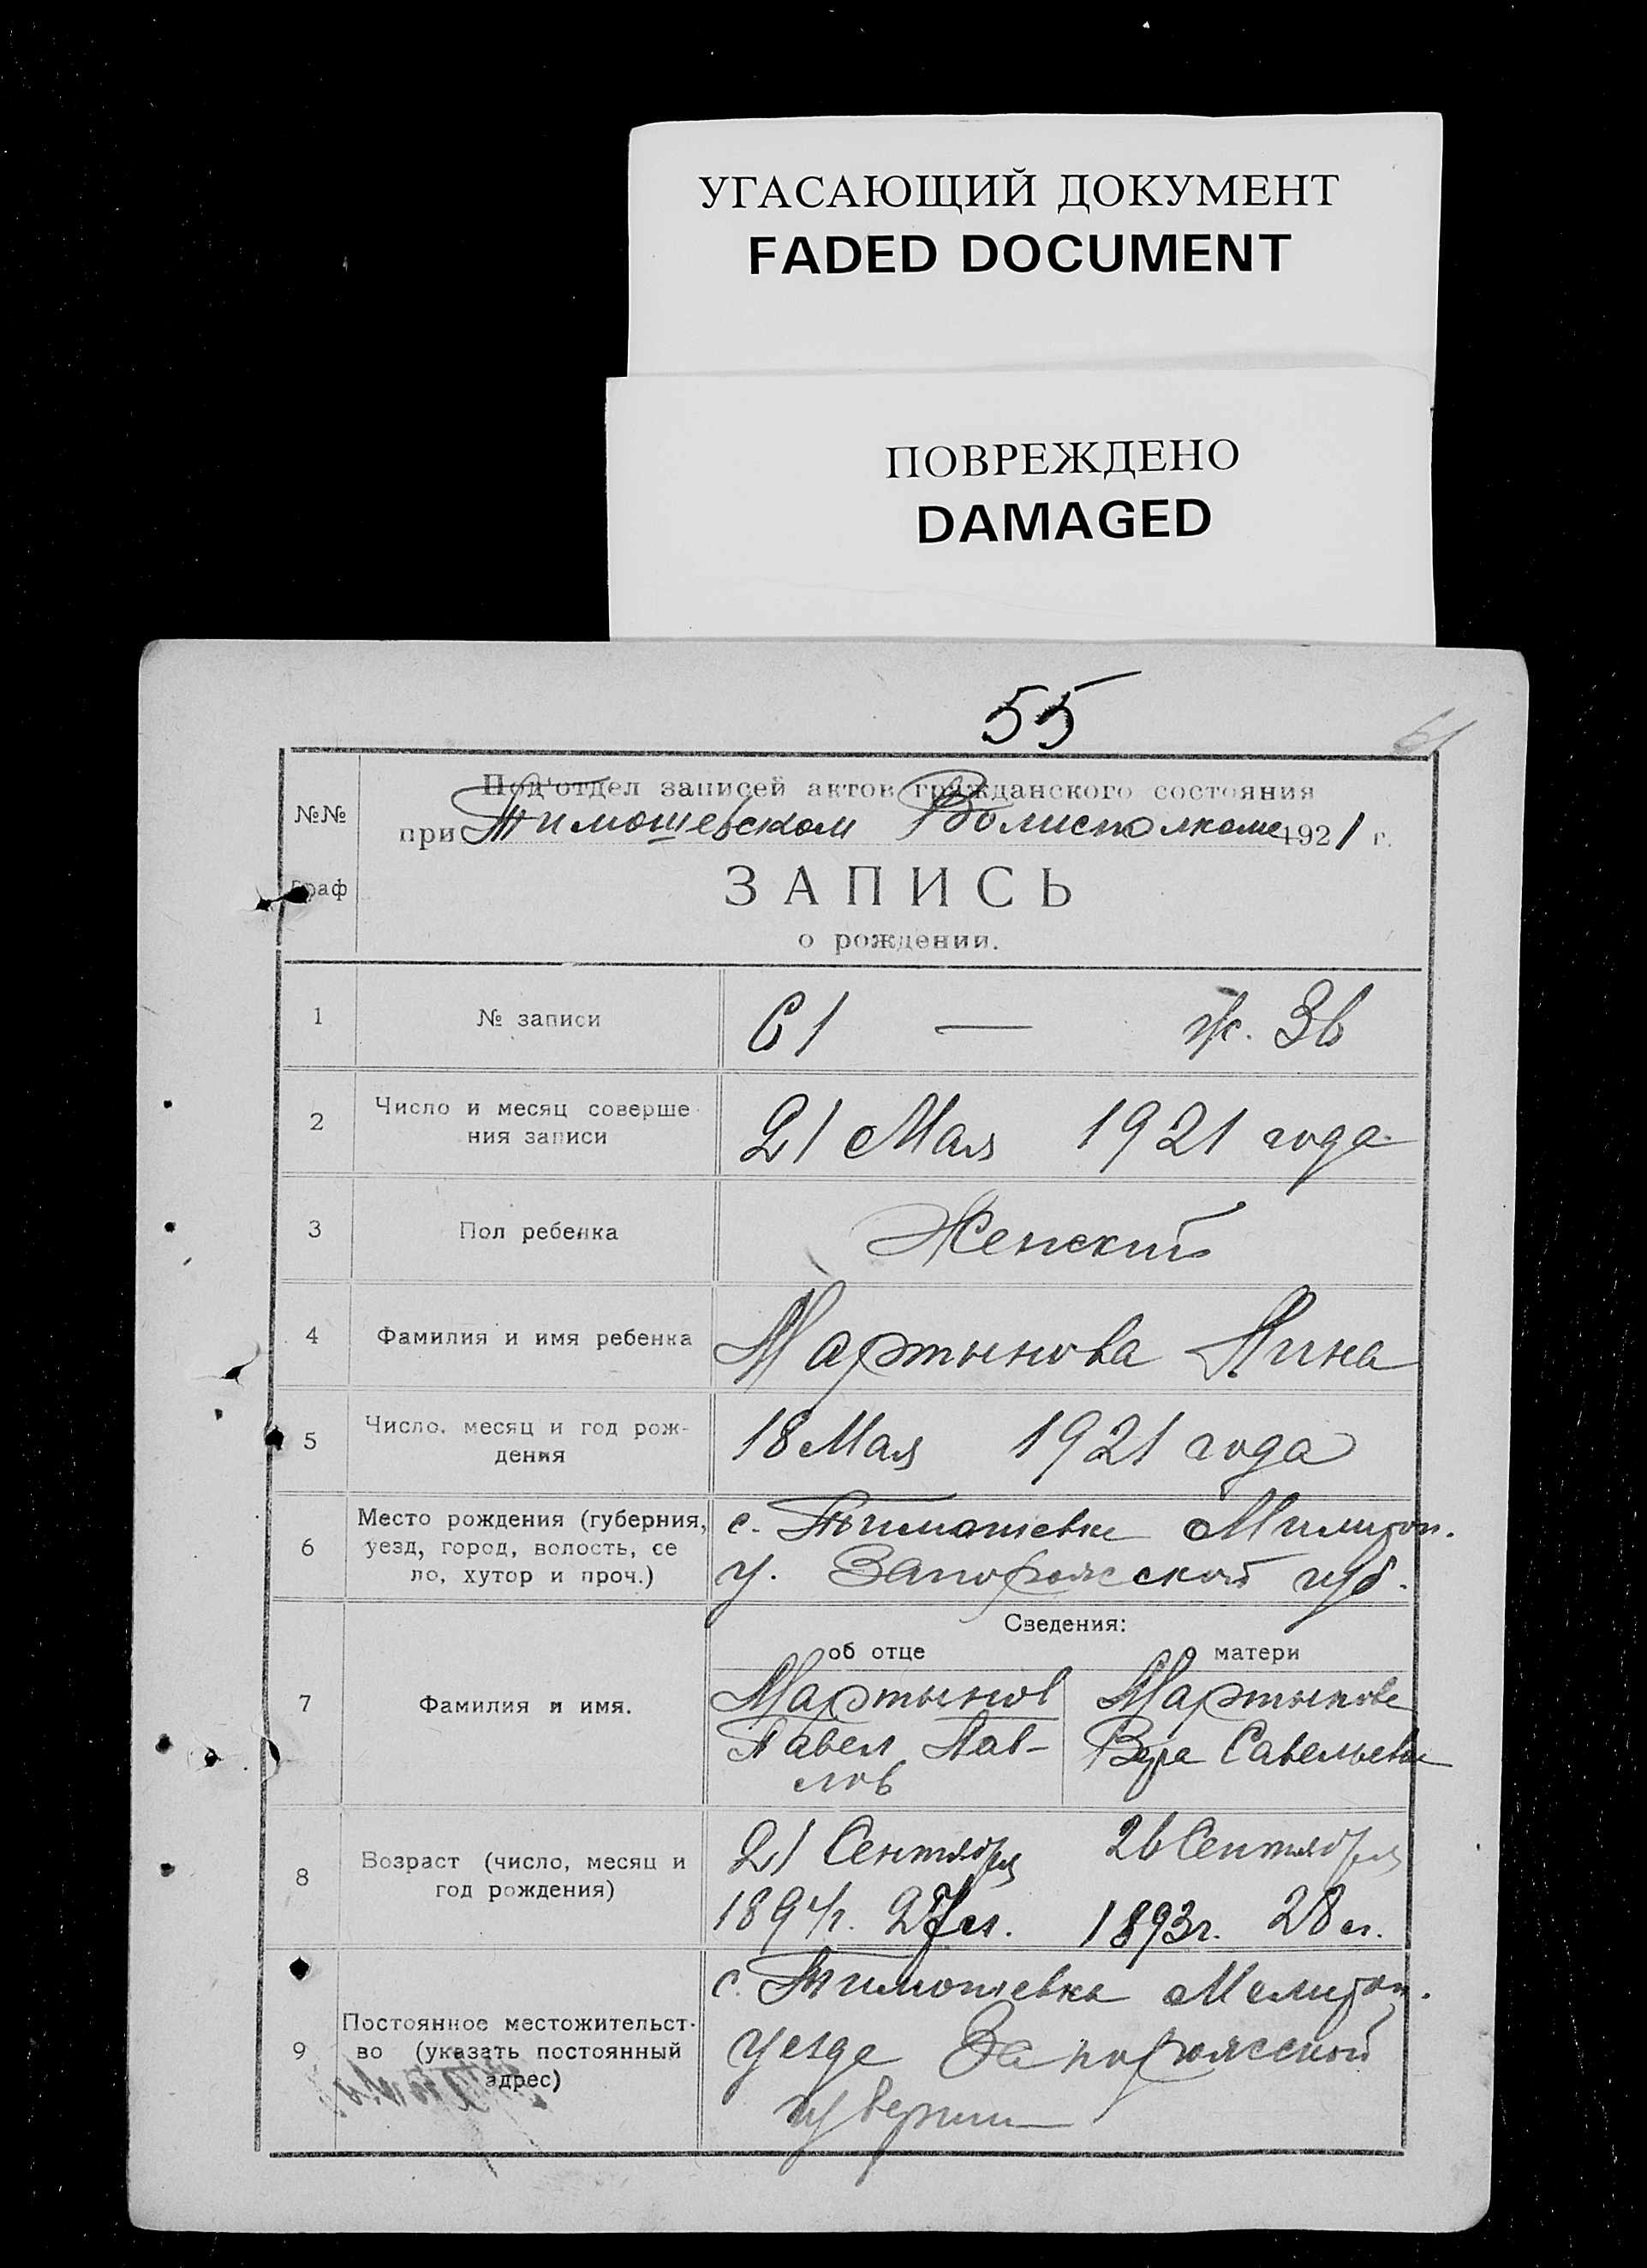 УГАСАЮЩИЙ ДОКУМЕНТ
FADED DOCUMENT
ПОВРЕЖДЕНО
DAMAGED
55
61
№№
граф
Под'отдел записей актов гражданского состояния
при Тимошевском Волисполкоме 1921 г.
ЗАПИСЬ
о рождении.
1 № записи 61 — ж. 36
2 Число и месяц соверше
ния записи
21 Мая 1921 года
3 Пол ребенка Женский
4 Фамилия и имя ребенка Мартынова Нина
5 Число, месяц и год рож-
дения
18 Мая 1921 года
6 Место рождения (губерния,
уезд, город, волость, се
ло, хутор и проч.)
с. Тимошевке Милитоп.
у. Запорожской губ.
Сведения:
об отце
о матери
7 Фамилия и имя.
Мартынов
Павел Пав-
лов
Мартынова
Вера Савельева
8 Возраст (число, месяц и
год рождения)
21 Сентября
1894г. 27 л.
26 Сентября
1893г. 28 л.
9 Постоянное местожительст-
во (указать постоянный
адрес)
с. Тимошевка Мелитоп.
уезда Запорожской
губернии